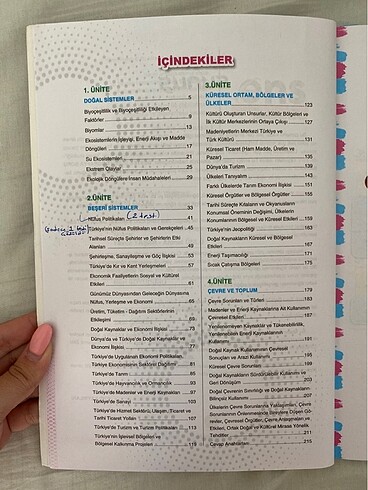 İÇİNDEKİLER
1. ÜNİTE
DOĞAL SİSTEMLER 5
Biyoçeşitlilik ve Biyoçeşitliliği Etkileyen
Faktörler 9
Biyomlar 13
Ekosistemlerin İşleyişi, Enerji Akışı ve Madde
Döngüleri 17
Su Ekosistemleri 21
Ekstrem Olaylar 25
Ekolojik Döngülere İnsan Müdahaleleri 29
2.ÜNİTE
BEŞERİ SİSTEMLER 33
Nüfus Politikaları 41
(2 test)
Türkiye'nin Nüfus Politikaları ve Gerekçeleri 45
Tarihsel Süreçte Şehirler ve Şehirlerin Etki
Alanları 49
Şehirleşme, Sanayileşme ve Göç İlişkisi 53
Türkiye'de Kır ve Kent Yerleşmeleri 57
Ekonomik Faaliyetlerin Sosyal ve Kültürel
Etkileri 61
Günümüz Dünyasından Geleceğin Dünyasına
Nüfus, Yerleşme ve Ekonomi 65
Üretim, Tüketim - Dağıtım Sektörlerinin
Etkileşimi 69
Doğal Kaynaklar ve Ekonomi İlişkisi 73
Dünya'da ve Türkiye'de Doğal Kaynaklar ve
Ekonomi İlişkisi 77
Türkiye'de Uygulanan Ekonomi Politikaları,
Türkiye Ekonomisinin Sektörel Dağılımı 81
Türkiye'de Tarım 85
Türkiye'de Hayvancılık ve Ormancılık 93
Türkiye'de Madenler ve Enerji Kaynakları 97
Türkiye'de Sanayi 103
Türkiye'de Hizmet Sektörü, Ulaşım, Ticaret ve
Tarihi Ticaret Yolları 107
Türkiye'de Turizm ve Turizm Politikaları 113
Türkiye'nin İşlevsel Bölgeleri ve
Bölgesel Kalkınma Projeleri 119
3.ÜNİTE
KÜRESEL ORTAM, BÖLGELER VE
ÜLKELER 123
Kültürü Oluşturan Unsurlar, Kültür Bölgeleri ve
İlk Kültür Merkezlerinin Ortaya Çıkışı 127
Medeniyetlerin Merkezi Türkiye ve
Türk Kültürü 131
Küresel Ticaret (Ham Madde, Üretim ve
Pazar) 135
Dünya'da Turizm 139
Ülkeleri Tanıyalım 143
Farklı Ülkelerde Tarım Ekonomi İlişkisi 151
Küresel Örgütler ve Bölgesel Örgütler 155
Tarihi Süreçte Kıtaların ve Okyanusların
Konumsal Öneminin Değişimi, Ülkelerin
Konumlarının Bölgesel ve Küresel Etkileri 159
Türkiye'nin Jeopolitiği 163
Doğal Kaynakların Küresel ve Bölgesel
Etkileri 167
Enerji Taşımacılığı 171
Sıcak Çatışma Bölgeleri 175
4.ÜNİTE
ÇEVRE VE TOPLUM 179
Çevre Sorunları ve Türleri 183
Madenler ve Enerji Kaynaklarına Ait Kullanımın
Çevresel Etkileri 187
Yenilenemeyen Kaynaklar ve Tükenebilirlik,
Yenilenebilir Enerji Kaynaklarının
Kullanımı 191
Doğal Kaynak Kullanımının Çevresel
Sonuçları ve Arazi Kullanımı 195
Küresel Çevre Sorunları 199
Doğal Kaynakların Sürdürülebilir Kullanımı ve
Geri Dönüşüm 203
Doğal Çevrenin Sınırlılığı ve Doğal Kaynakların
Bilinçsiz Kullanımı 207
Ülkelerin Çevre Sorunlarına Yaklaşımları, Çevre
Sorunlarının Önlenmesinde
Tehditler 211
Cevap Anahtarları 215